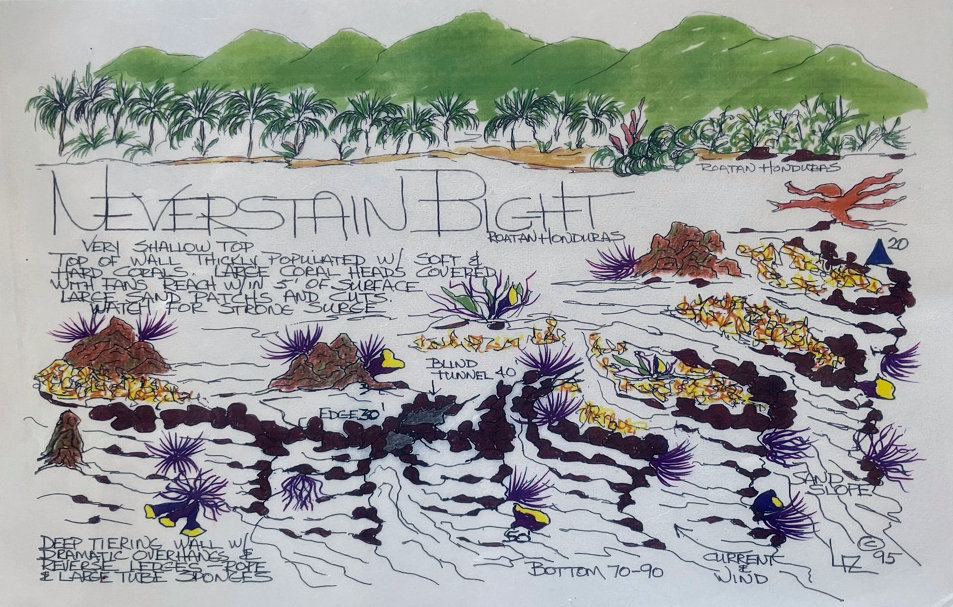 ROATAN HONDURAS
NEVERSTAIN BIGHT
ROATAN HONDURAS
VERY SHALLOW TOP
TOP OF WALL THICKLY POPULATED W/ SOFT &
HARD CORALS. LARGE CORAL HEADS COVERED
WITH FANS REACH W/IN 5' OF SURFACE
LARGE SAND PATCHS AND CUTS.
WATCH FOR STRONG SURGE
20
BLIND
TUNNEL 40
EDGE 30'
SAND
SLOPE
50'
DEEP TIERING WALL W/
DRAMATIC OVERHANGS &
REVERSE LEDGES. ROPE
& LARGE TUBE SPONGES
BOTTOM 70-90
CURRENT
&
WIND
LIZ © 95